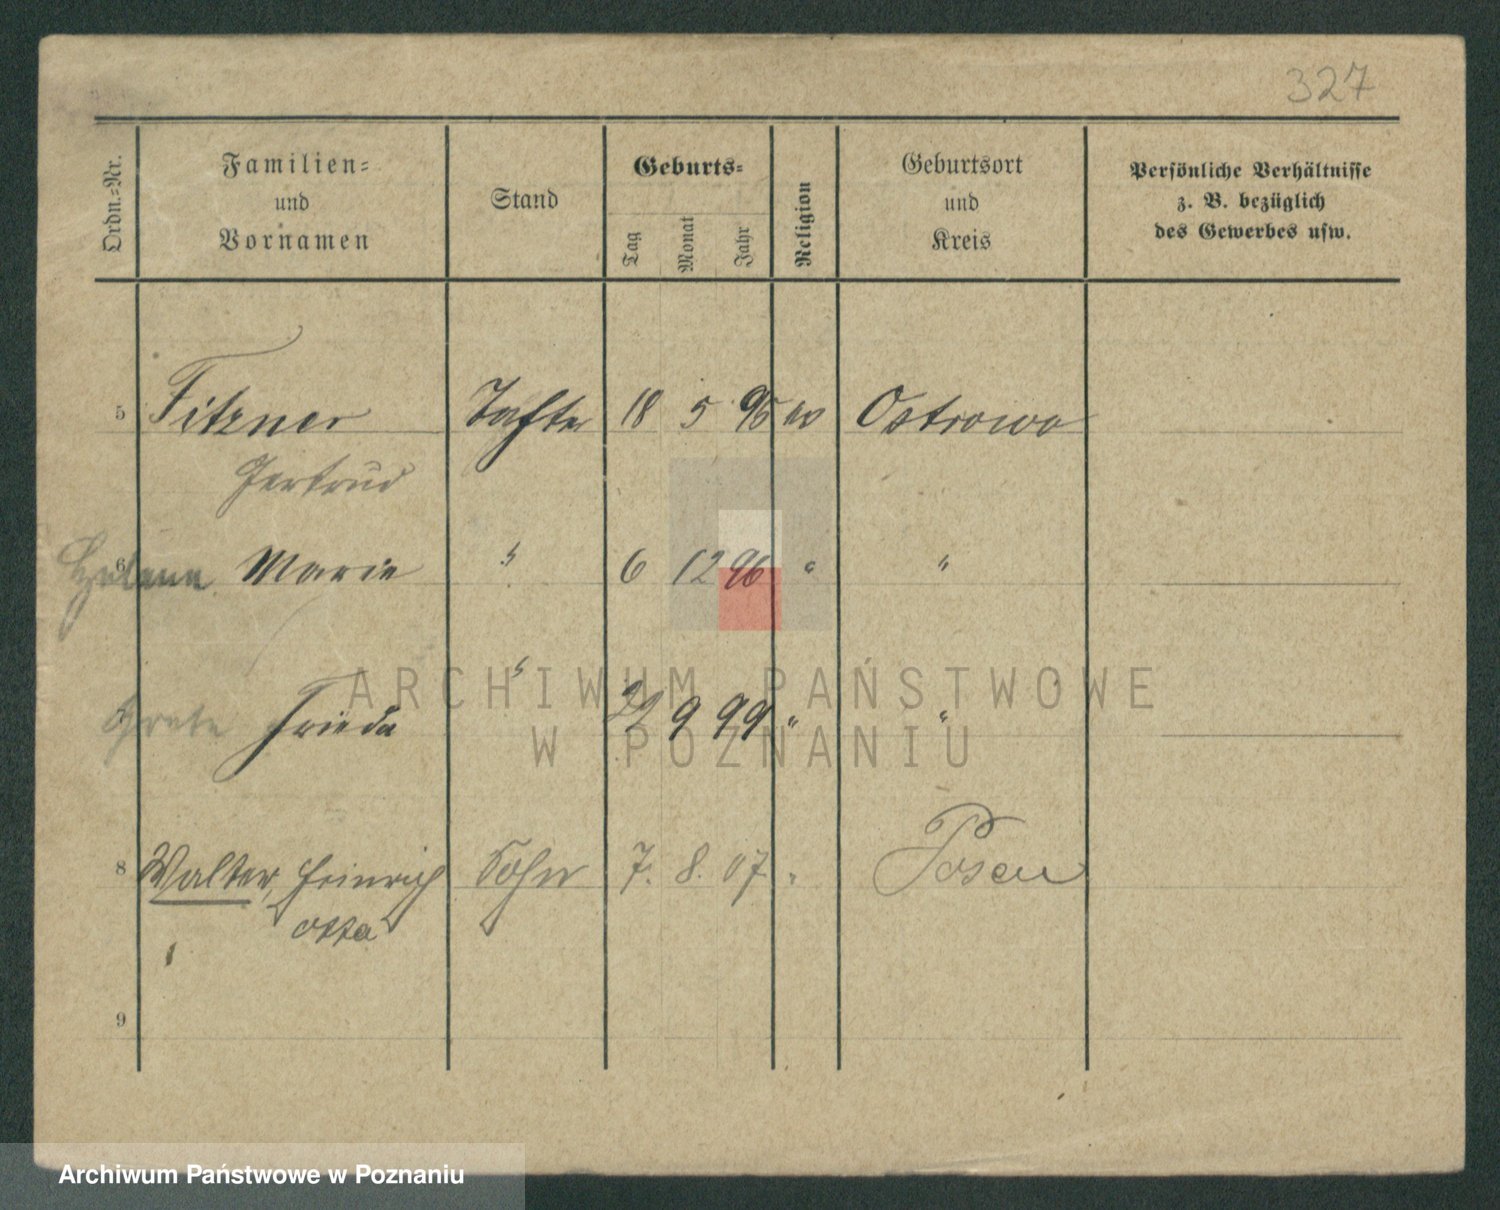 327
Ordn.-Nr.
Familien-
und
Vornamen
Stand
Geburts-
Tag
Monat
Jahr
Religion
Geburtsort
und
Kreis
Persönliche Verhältnisse
z. B. bezüglich
des Gewerbes usw.
5 Fitzner 18 5 Ostrowo
Gertrud
6 Marie " 6 12 96 " "
Grete Frieda " 22 9 99 " "
8 Walter, Heinrich Sohn 7. 8. 07 " Posen
Otto
9
ARCHIWUM PAŃSTWOWE
W POZNANIU
Archiwum Państwowe w Poznaniu